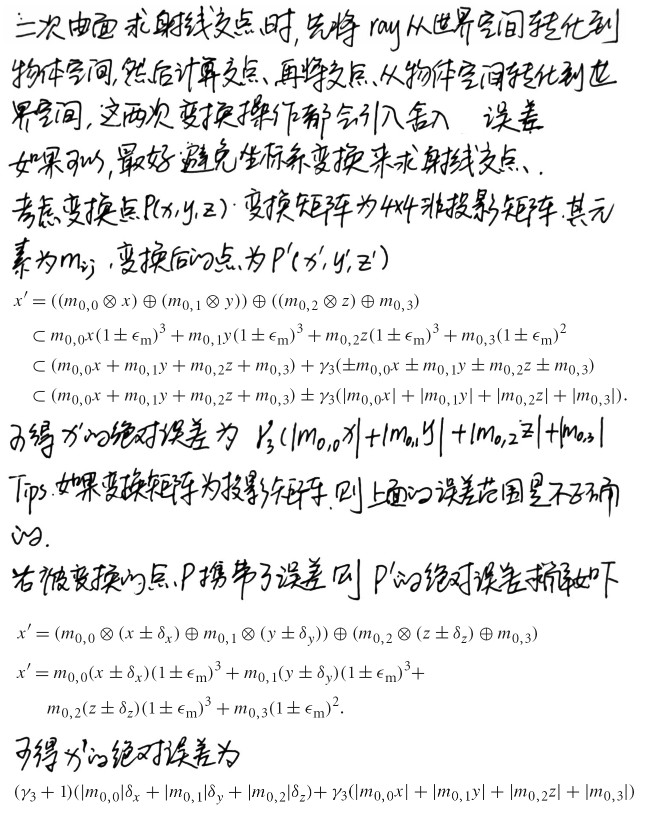 二次曲面求射线交点时,先将 ray 从世界空间转化到
物体空间,然后计算交点、再将交点从物体空间转化到世
界空间,这两次变换操作都会引入舍入 误差
如果可以,最好避免坐标系变换来求射线交点、.
考虑变换点P(x,y,z)·变换矩阵为4x4非投影矩阵.其元
素为mij,变换后的点为P'(x',y',z')
x′ = ((m0,0 ⊗ x) ⊕ (m0,1 ⊗ y)) ⊕ ((m0,2 ⊗ z) ⊕ m0,3)
⊂ m0,0x(1 ± ϵm)³ + m0,1y(1 ± ϵm)³ + m0,2z(1 ± ϵm)³ + m0,3(1 ± ϵm)²
⊂ (m0,0x + m0,1y + m0,2z + m0,3) + γ3(±m0,0x ± m0,1y ± m0,2z ± m0,3)
⊂ (m0,0x + m0,1y + m0,2z + m0,3) ± γ3(|m0,0x| + |m0,1y| + |m0,2z| + |m0,3|).
可得x'的绝对误差为 γ3(|m0,0x|+|m0,1y|+|m0,2z|+|m0,3|
Tips.如果变换矩阵为投影矩阵.则上面的误差范围是不正确
的.
若被变换的点P携带了误差则P'的绝对误差求解如下
x′ = (m0,0 ⊗ (x ± δx) ⊕ m0,1 ⊗ (y ± δy)) ⊕ (m0,2 ⊗ (z ± δz) ⊕ m0,3)
x′ = m0,0(x ± δx)(1 ± ϵm)³ + m0,1(y ± δy)(1 ± ϵm)³+
m0,2(z ± δz)(1 ± ϵm)³ + m0,3(1 ± ϵm)².
可得x'的绝对误差为
(γ3 + 1)(|m0,0|δx + |m0,1|δy + |m0,2|δz)+ γ3(|m0,0x| + |m0,1y| + |m0,2z| + |m0,3|)